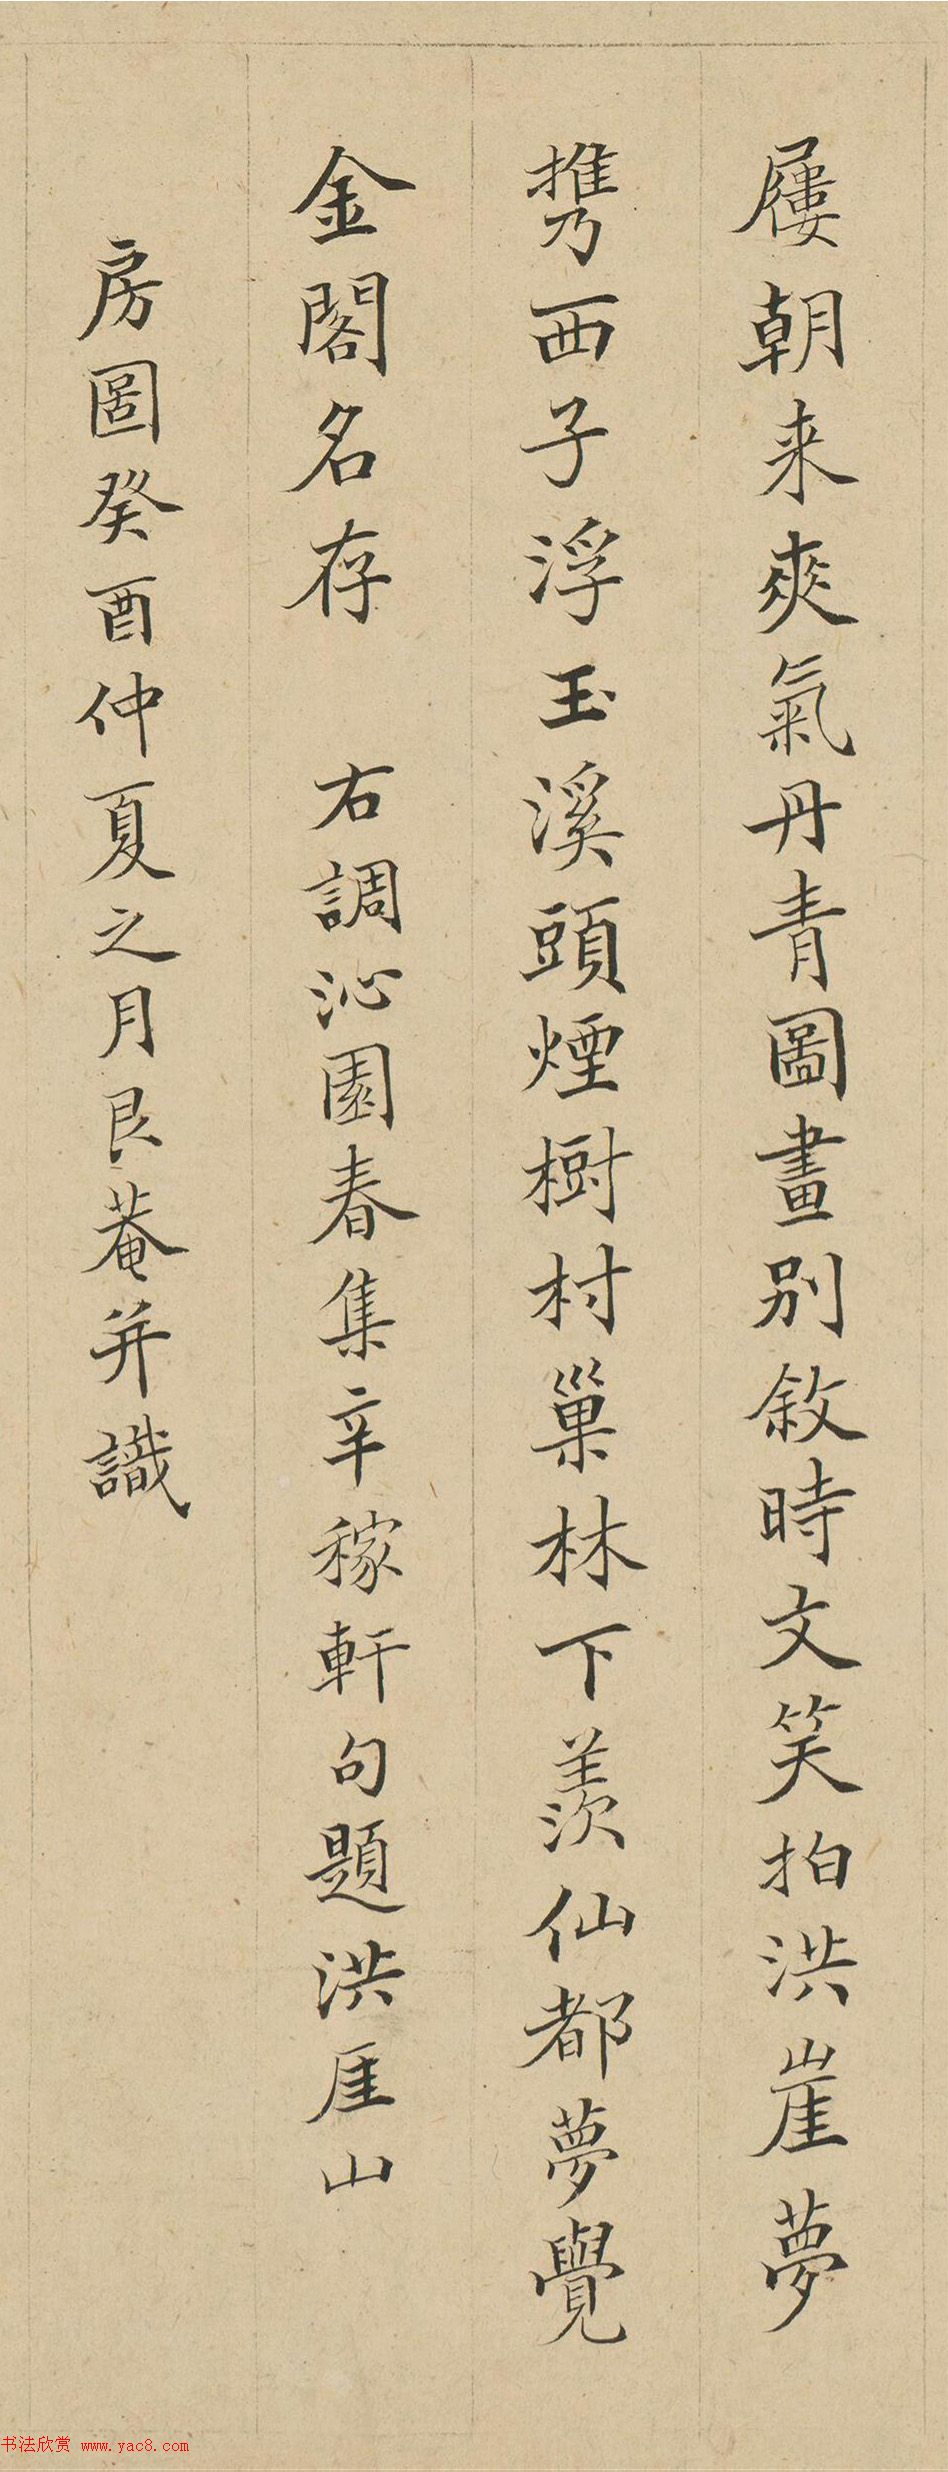 屨朝来爽氣丹青圖畫別敘時文笑拍洪崖夢
携西子浮玉溪頭煙樹村巢林下羨仙都夢覺
金閣名存　右調沁園春集辛稼軒句題洪厓山
房圖癸酉仲夏之月艮菴并識
书法欣赏 www.yac8.com